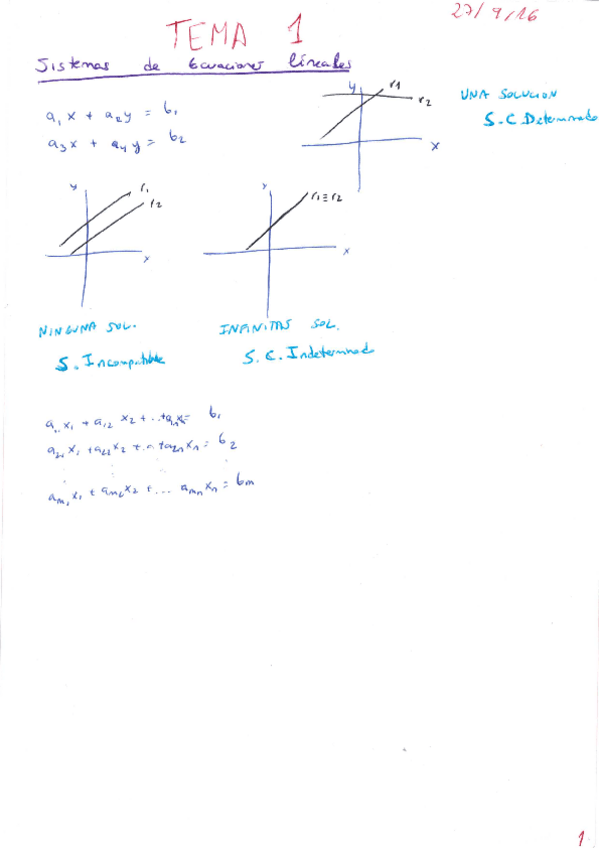 27/9/16
TEMA 1
Sistemas de Ecuaciones lineales
a₁x + a₂y = b₁
a₃x + a₄y = b₂
y r1 r2 x
UNA SOLUCION
S.C. Determinado
y r₁ r₂ x
y r₁ ≡ r₂ x
NINGUNA SOL.
S. Incompatible
INFINITAS SOL.
S.C. Indeterminado
a₁₁x₁ + a₁₂x₂ + ... + a₁ₙxₙ = b₁
a₂₁x₁ + a₂₂x₂ + ... + a₂ₙxₙ = b₂
aₘ₁x₁ + aₘ₂x₂ + ... aₘₙxₙ = bm
1